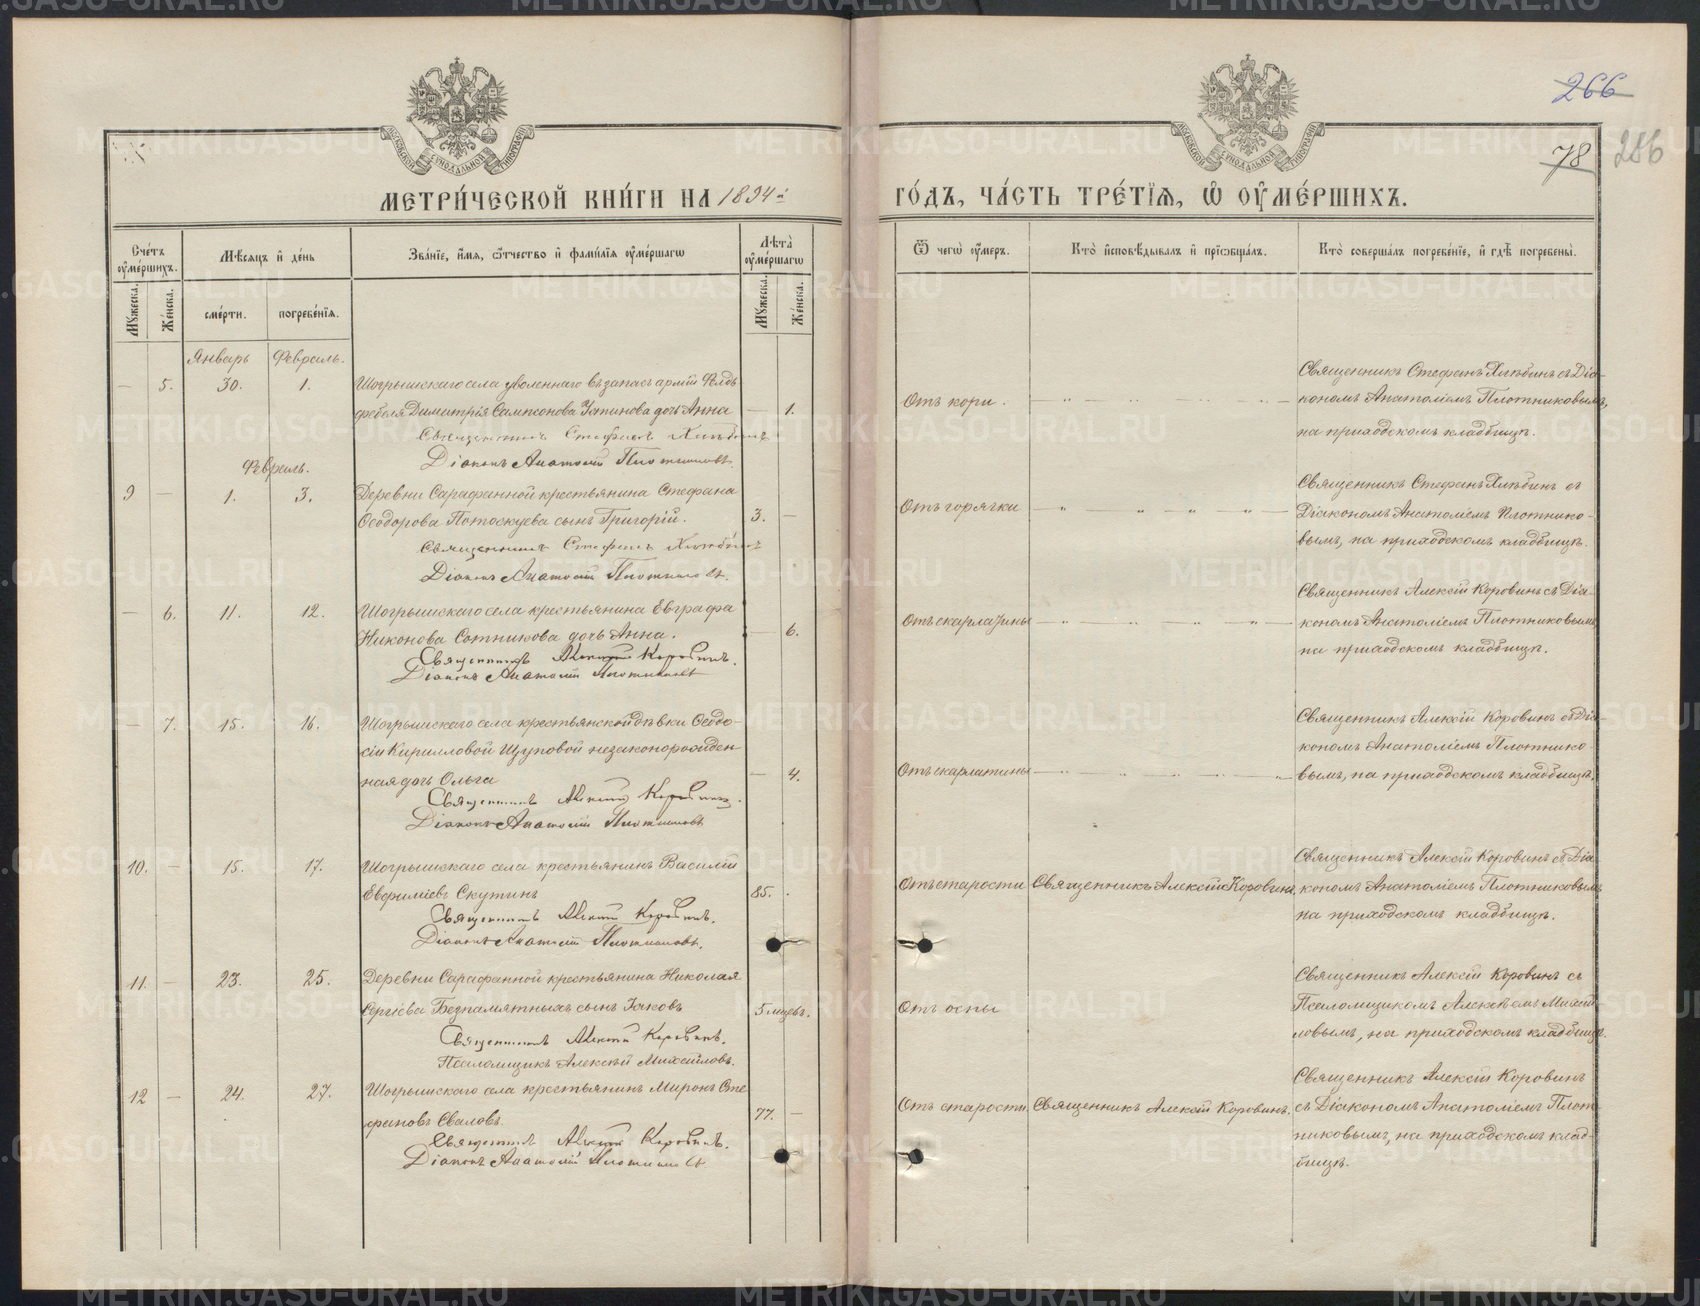 266
78
286
МОСКОВСКОЙ СѴНОДАЛЬНОЙ ТИПОГРАФІИ
МОСКОВСКОЙ СѴНОДАЛЬНОЙ ТИПОГРАФІИ
МЕТРИ́ЧЕСКОЙ КНИ́ГИ НА 1894 й
ГО́ДЪ, ЧА́СТЬ ТРЕ́ТІѦ, Ѡ҆ ОУ҆МЕ́РШИХЪ.
Сче́тъ оу҆ме́ршихъ.
Мѣ́сяцъ и҆ де́нь
Зва́нїе, и҆́мя, ѻ҆́тчество и҆ фами́лїя оу҆ме́ршагѡ
Лѣ́та оу҆ме́ршагѡ
Ѿ чегѡ̀ оу҆́меръ.
Кто̀ и҆сповѣ́дывалъ и҆ прїѡбща́лъ.
Кто̀ соверша́лъ погребе́нїе, и҆ гдѣ̀ погребены̀.
Мꙋ́жеска.
Же́нска.
сме́рти.
погребе́нїя.
Мꙋ́жеска.
Же́нска.
Январь Февраль.
— 5. 30. 1.
Шогрышскаго села уволеннаго въ запасъ армiи Фелдъ-
фебеля Димитрiя Сампсонова Уапинова дочь Анна
— 1.
Священникъ Стефанъ Хлѣбинъ
Дiаконъ Анатолiй Плотниковъ.
Отъ кори.
Священникъ Стефанъ Хлѣбинъ съ Дiа-
кономъ Анатолiемъ Плотниковымъ,
на приходскомъ кладбищѣ.
Февраль.
9 — 1. 3.
Деревни Сарафанной крестьянина Стефана
Ѳеодорова Потоскуева сынъ Григорiй.
3. —
Священникъ Стефанъ Хлѣбинъ
Дiаконъ Анатолiй Плотниковъ.
Отъ горячки
Священникъ Стефанъ Хлѣбинъ съ
Дiакономъ Анатолiемъ Плотнико-
вымъ, на приходскомъ кладбищѣ.
— 6. 11. 12.
Шогрышскаго села крестьянина Евграфа
Никонова Сотникова дочь Анна.
— 6.
Священникъ Алексiй Коровинъ.
Дiаконъ Анатолiй Плотниковъ
Отъ скарлатины
Священникъ Алексiй Коровинъ съ Дiа-
кономъ Анатолiемъ Плотниковымъ
на приходскомъ кладбищѣ.
— 7. 15. 16.
Шогрышскаго села крестьянской дѣвки Ѳеодо-
сiи Кирилловой Щуповой незаконорожден
ная дочь Ольга
— 4.
Священникъ Алексiй Коровинъ.
Дiаконъ Анатолiй Плотниковъ
Отъ скарлатины
Священникъ Алексiй Коровинъ съ Дiа-
кономъ Анатолiемъ Плотнико
вымъ, на приходскомъ кладбищѣ.
10. — 15. 17.
Шогрышскаго села крестьянинъ Василiй
Евфимiевъ Скутинъ
85.
Священникъ Алексiй Коровинъ.
Дiаконъ Анатолiй Плотниковъ.
Отъ старости
Священникъ Алексiй Коровинъ
Священникъ Алексiй Коровинъ съ Дiа
кономъ Анатолiемъ Плотниковымъ
на приходскомъ кладбищѣ.
11. — 23. 25.
Деревни Сарафанной крестьянина Николая
Сергiева Безпамятныхъ сынъ Iаковъ
5 мѣцевъ.
Священникъ Алексiй Коровинъ.
Псаломщикъ Алексѣй Михайловъ.
Отъ оспы
Священникъ Алексiй Коровинъ съ
Псаломщикомъ Алексѣемъ Михай
ловымъ, на приходскомъ кладбищѣ.
12 — 24. 27.
Шогрышскаго села крестьянинъ Миронъ Сте
фановъ Сваловъ.
77. —
Священникъ Алексiй Коровинъ.
Дiаконъ Анатолiй Плотниковъ
Отъ старости.
Священникъ Алексiй Коровинъ.
Священникъ Алексiй Коровинъ
съ Дiакономъ Анатолiемъ Плот-
никовымъ, на приходскомъ клад-
бищѣ.
METRIKI.GASO-URAL.RU